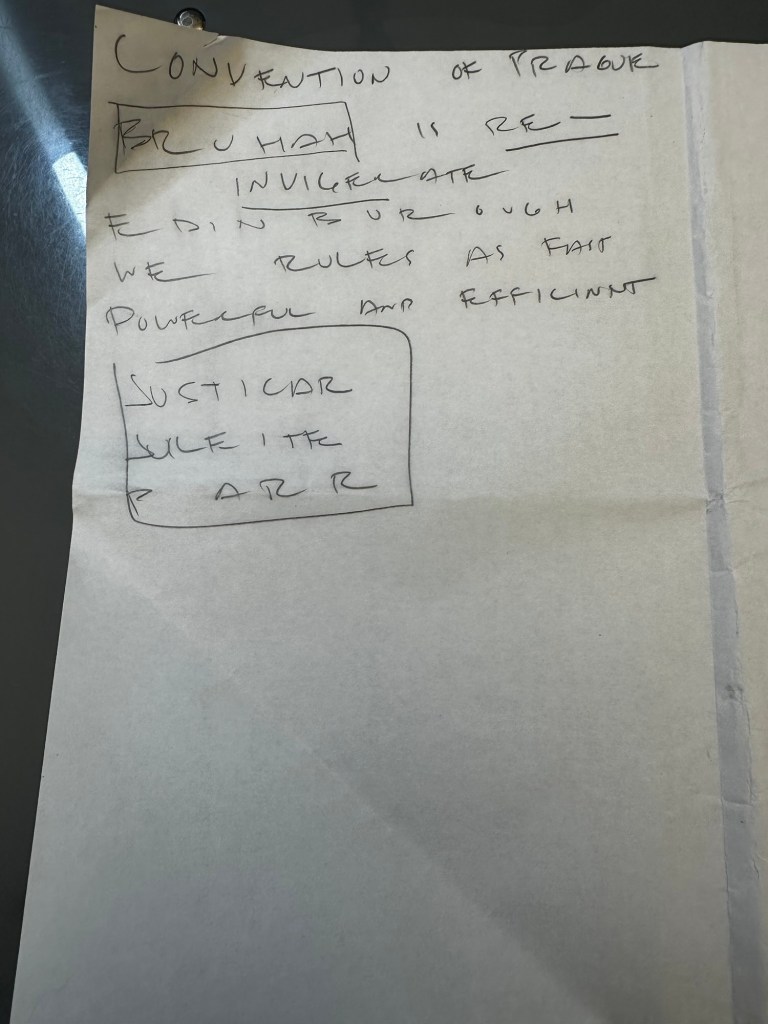 CONVENTION OF PRAGUE
BRUHAH IS RE-
INVIGELATE
EDINBUROUGH
WE RULES AS FAST
POWERFUL AND EFFICINNT
JUSTICAR
JULEITE
PARR